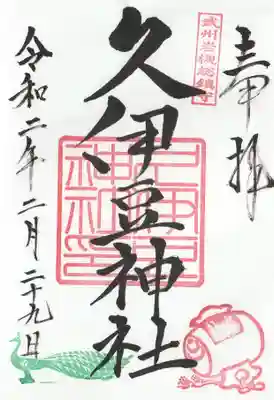 奉拝
武州岩槻総鎮守
久伊豆神社
令和二年二月二十九日